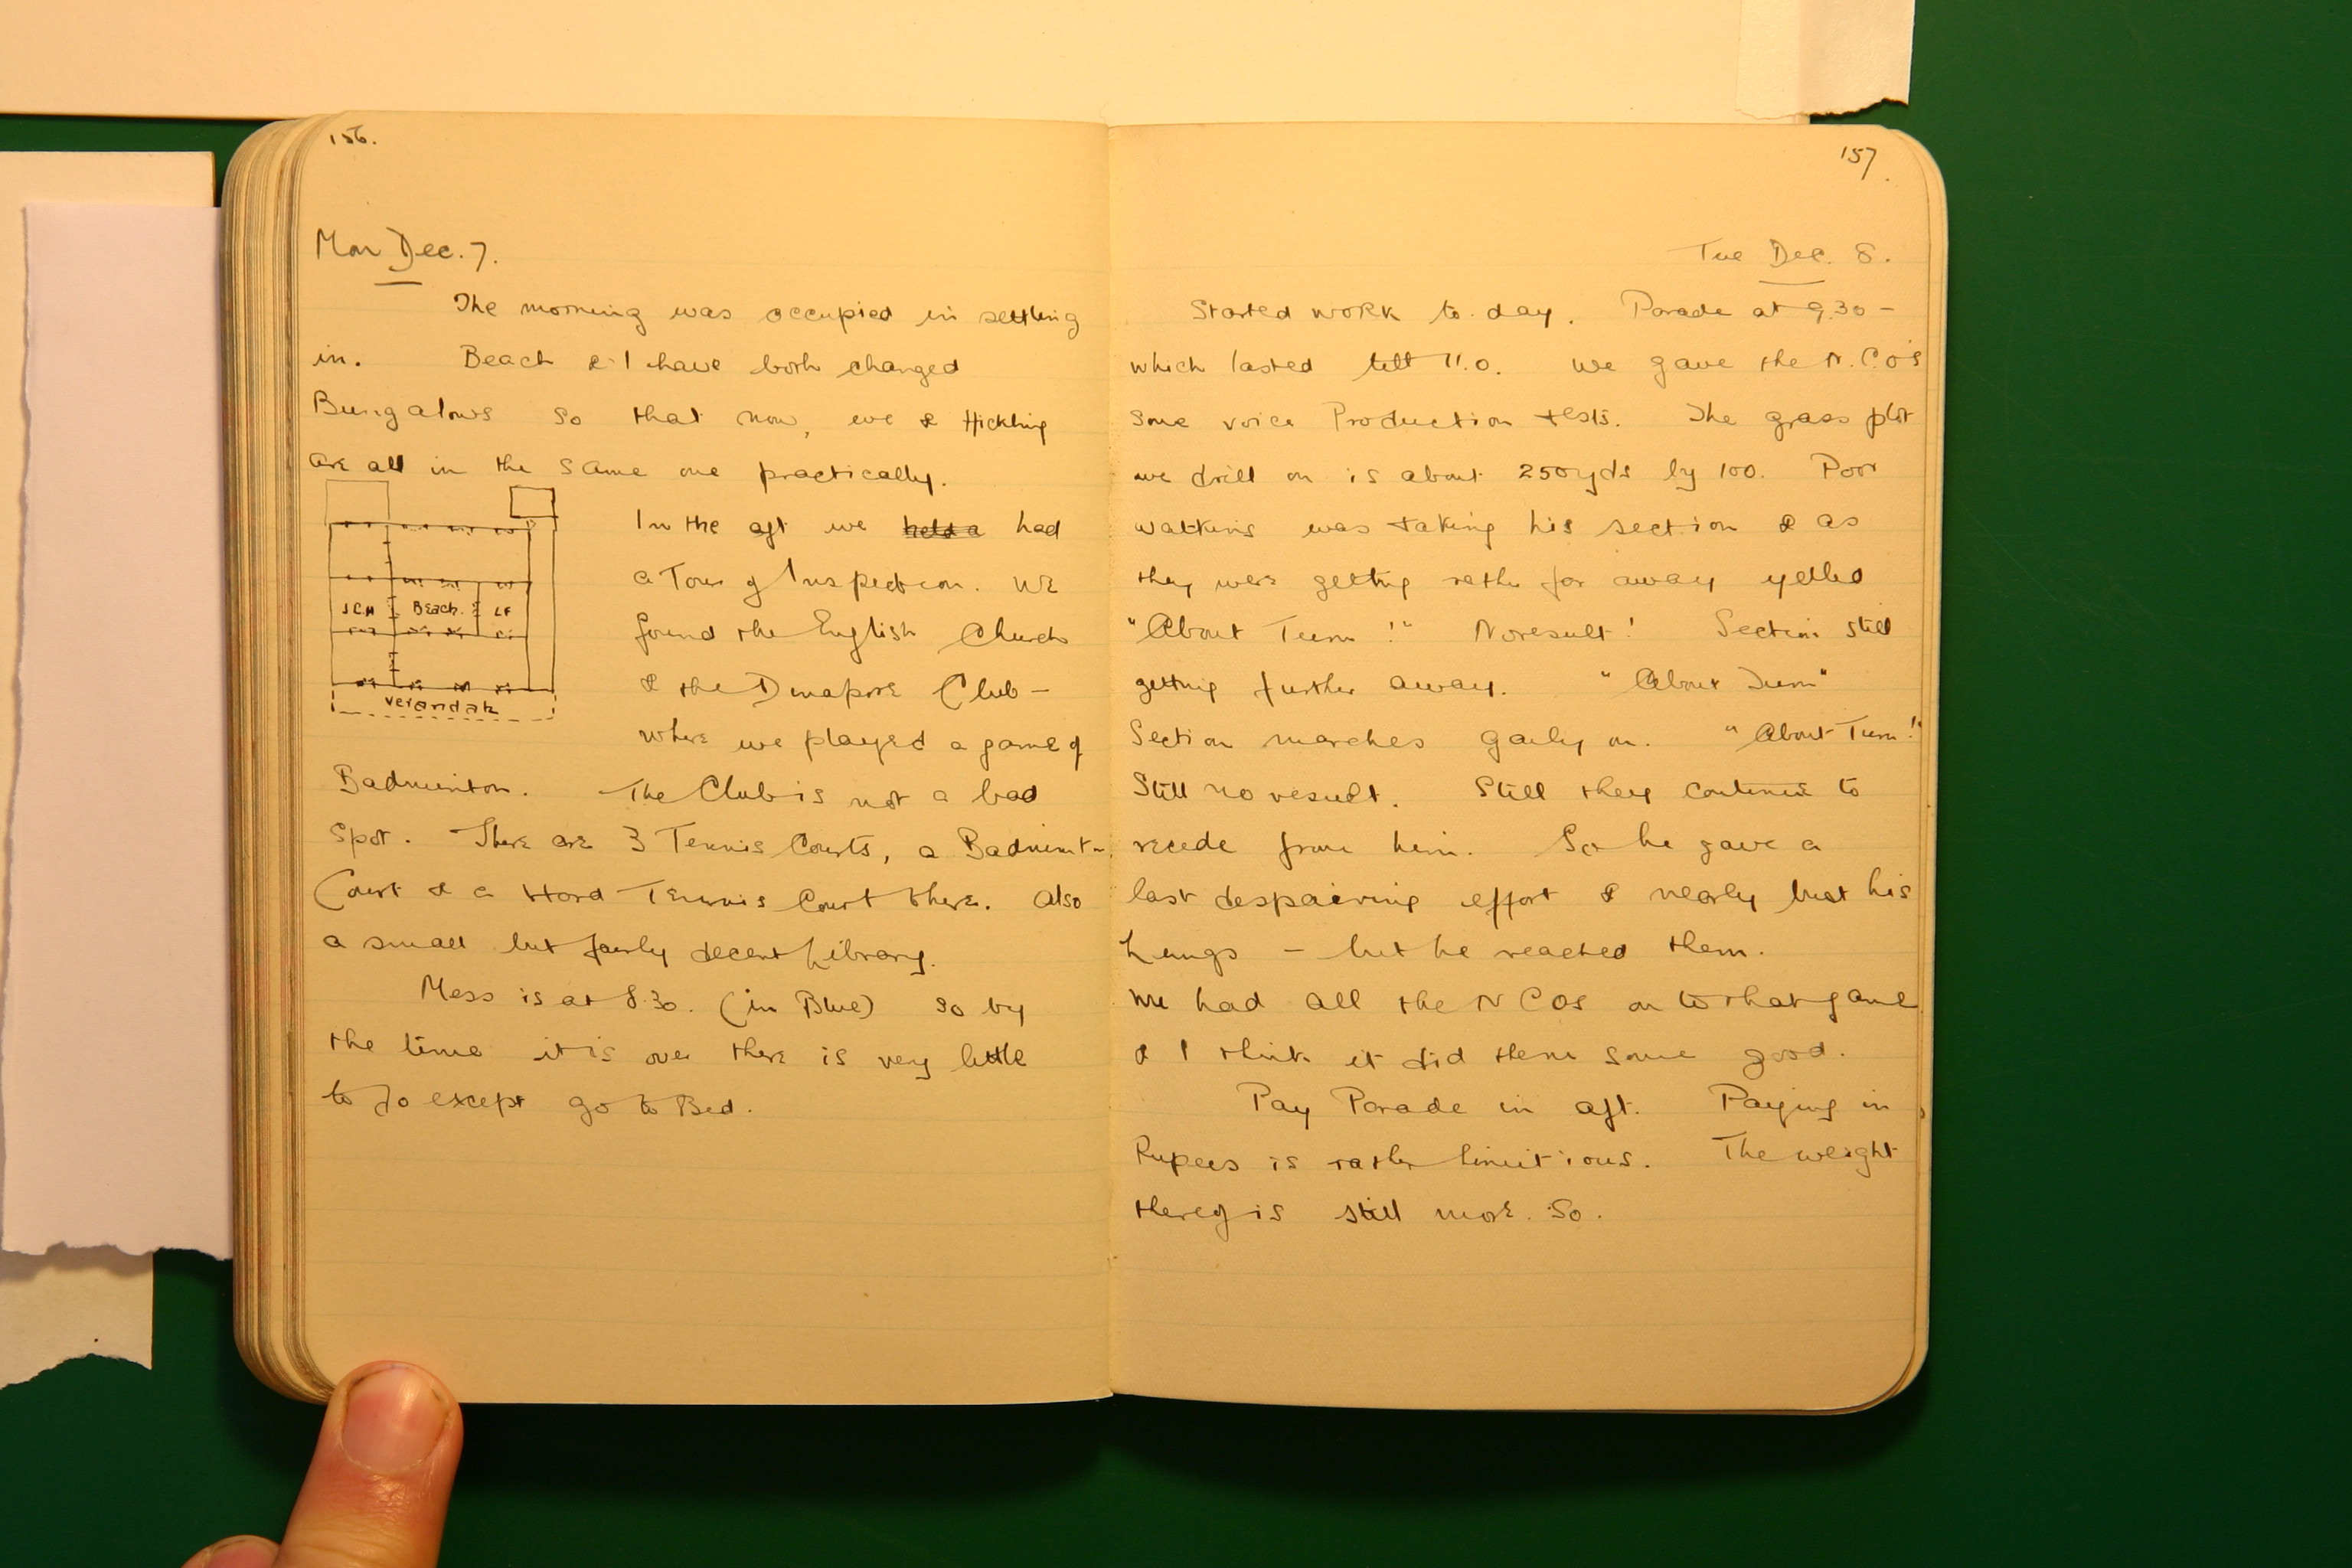 156.
Mon Dec. 7.
The morning was occupied in settling
in. Beach & I have both changed
Bungalows so that now, we & Hickling
are all in the same one practically.
In the aft we held a had
a Tour of Inspection. We
found the English Church
& the Dinapore Club –
where we played a game of
JCH Beach. LF
Verandah
Badminton. The Club is not a bad
Spot. There are 3 Tennis Courts, a Badmint–
Court & a Hard Tennis Court there. Also
a small but fairly decent Library.
Mess is at 8.30. (in Blue) so by
the time it is over there is very little
to do except go to Bed.
157.
Tue Dec. 8.
Started work to day. Parade at 9.30 –
which lasted till 11.0. We gave the N.C.O's
some voice Production tests. The grass plot
we drill on is about 250 yds by 100. Poor
Watkins was taking his section & as
they were getting rather far away yelled
"About Turn!" No result! Section still
getting further away. "About Turn"
Section marches gaily on. "About Turn!"
Still no result. Still they continue to
recede from him. So he gave a
last despairing effort & nearly bust his
Lungs – but he reached them.
We had all the NCOs on to that game
& I think it did them some good.
Pay Parade in aft. Paying in
Rupees is rather . The weight
thereof is still more so.